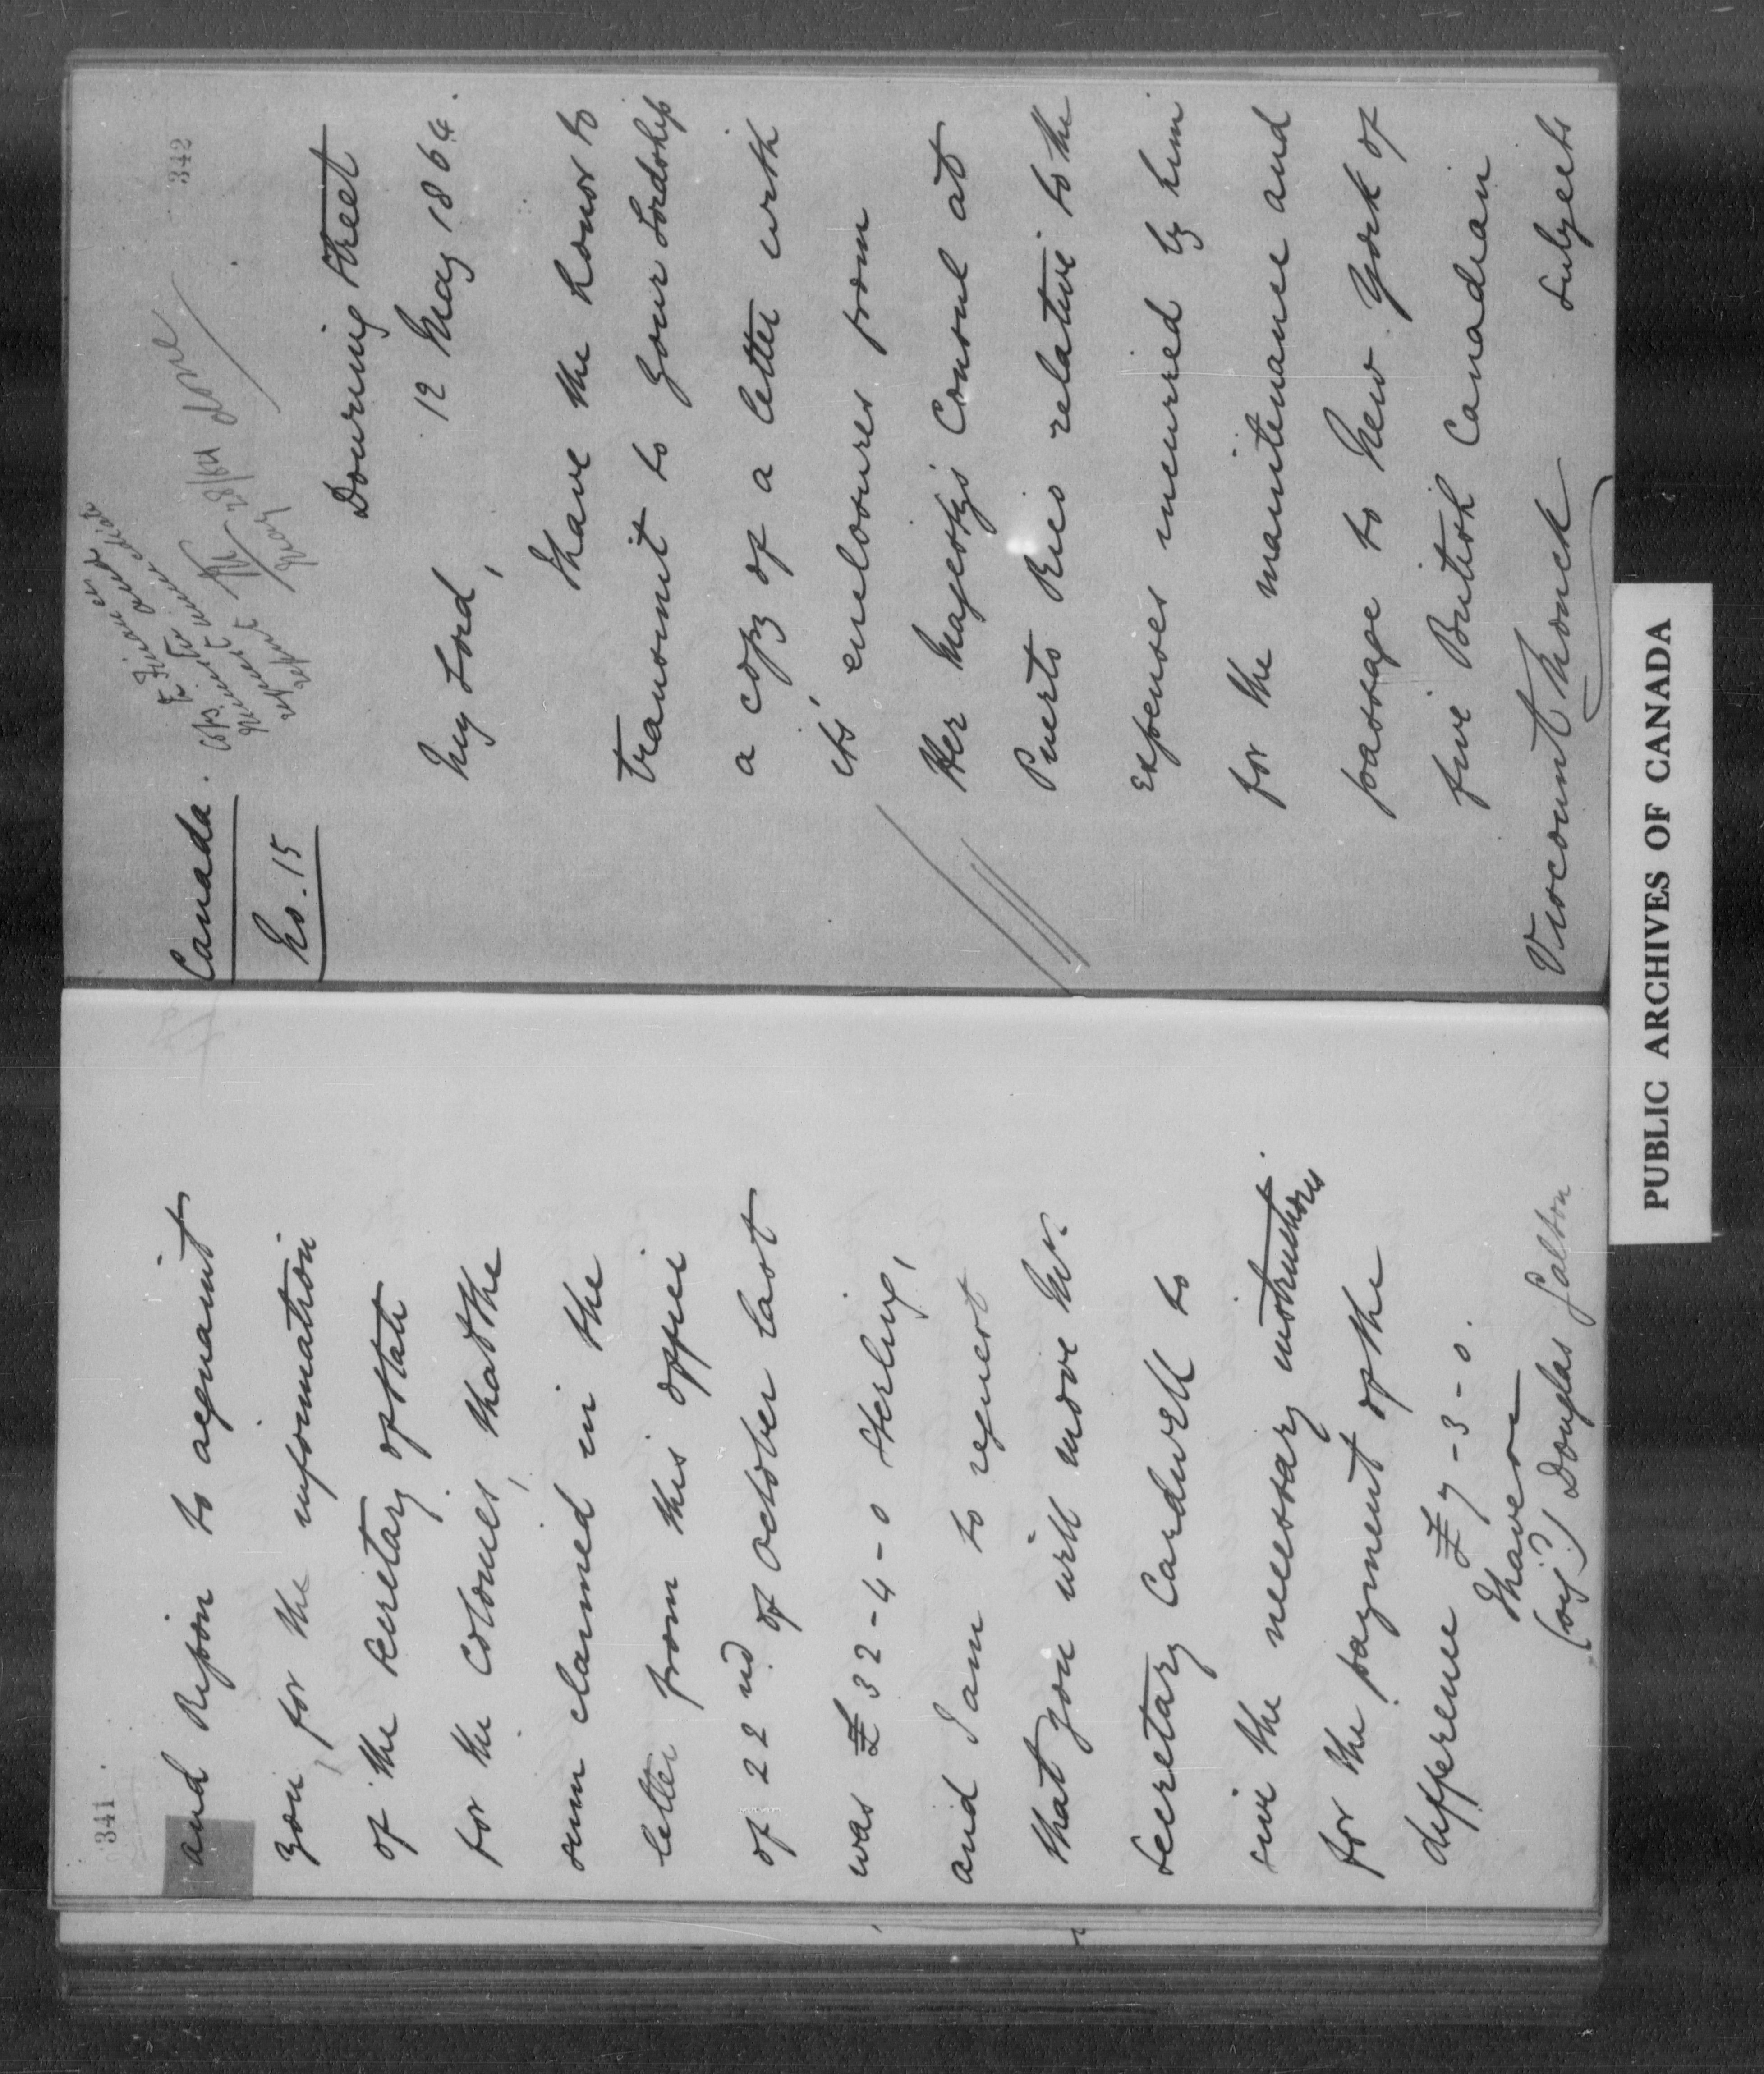 341
and Repon to acquaint
you, for the information
of the Secretary of State
for the Colonies, that the
sum claimed in the
letter from this office
of 22nd. of October last
was £32-4-0 Sterling,
and I am to request
that you will move Mr.
Secretary Cardwell to
give the necessary instructions.
for the payment of the
difference £7-3-0.
I have
(sig.) Douglas Galton
342
Canada.
No. 15
done
Downing Street
12 May 1864.
My Lord,
I have the honor to
transmit to Your Lordship
a copy of a letter with
its enclosures from
Her Majesty's Consul at
Puerto Rico relative to the
expenses incurred by him
for the maintenance and
passage to New York of
five British Canadian
subjects
Viscount Monck
PUBLIC ARCHIVES OF CANADA